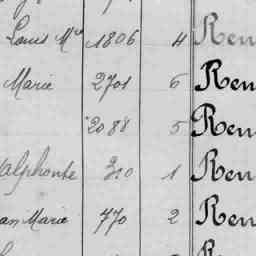 Louis Mie 1806 4 Ren
Marie 2701 6 Ren
2088 5 Ren
alphonse 320 1 Ren
an Marie 770 2 Ren